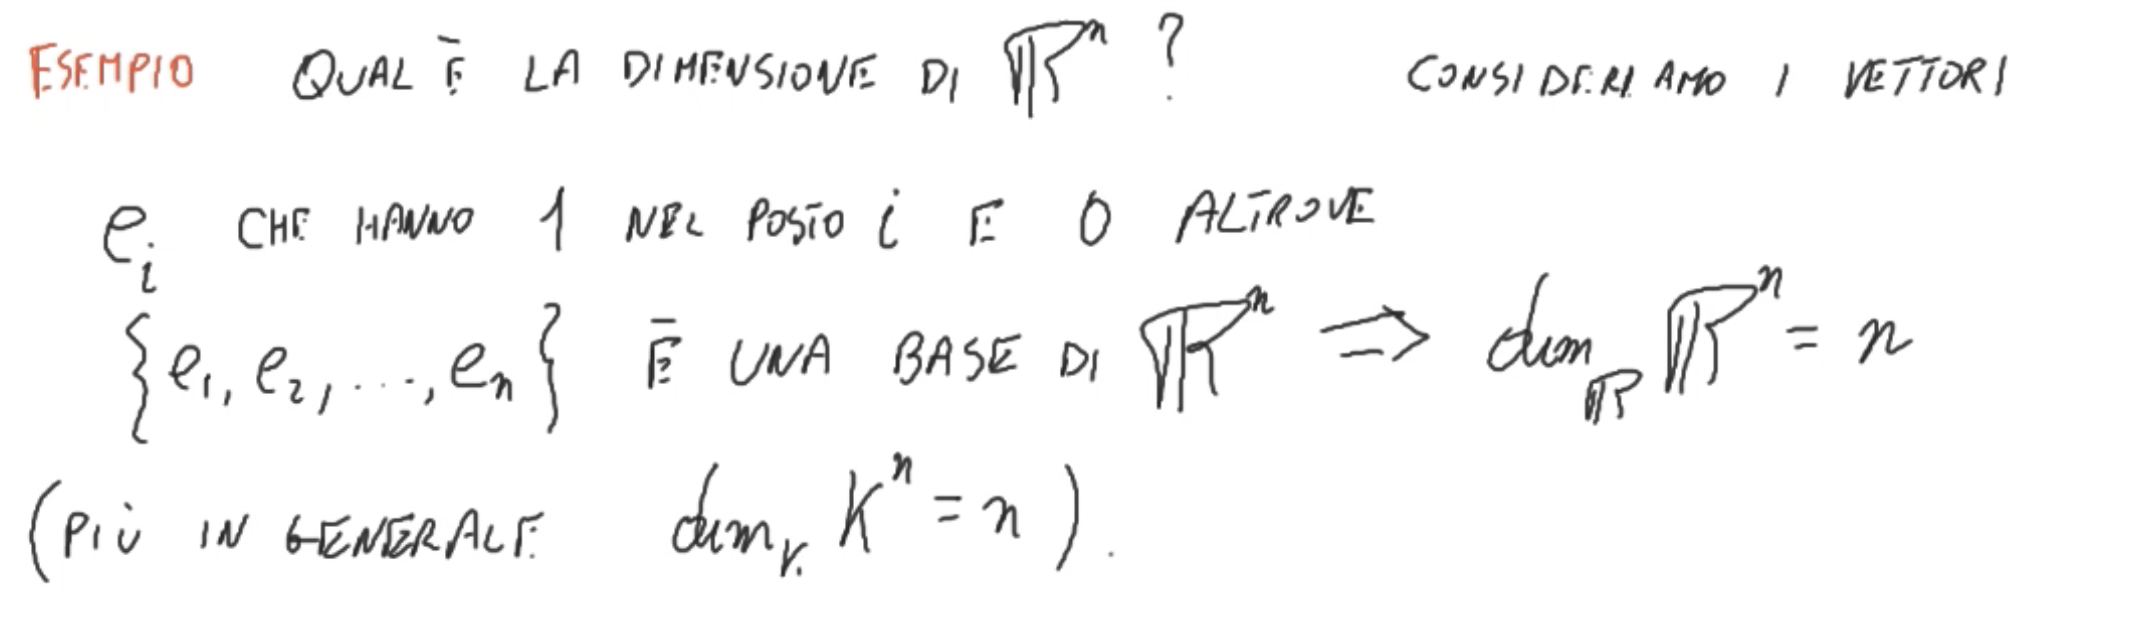 ESEMPIO QUAL È LA DIMENSIONE DI ℝⁿ ? CONSIDERIAMO I VETTORI
eᵢ CHE HANNO 1 NEL POSTO i E 0 ALTROVE
{e₁, e₂, ..., eₙ} È UNA BASE DI ℝⁿ ⇒ dim_ℝ ℝⁿ = n
(PIÙ IN GENERALE dim_K Kⁿ = n).